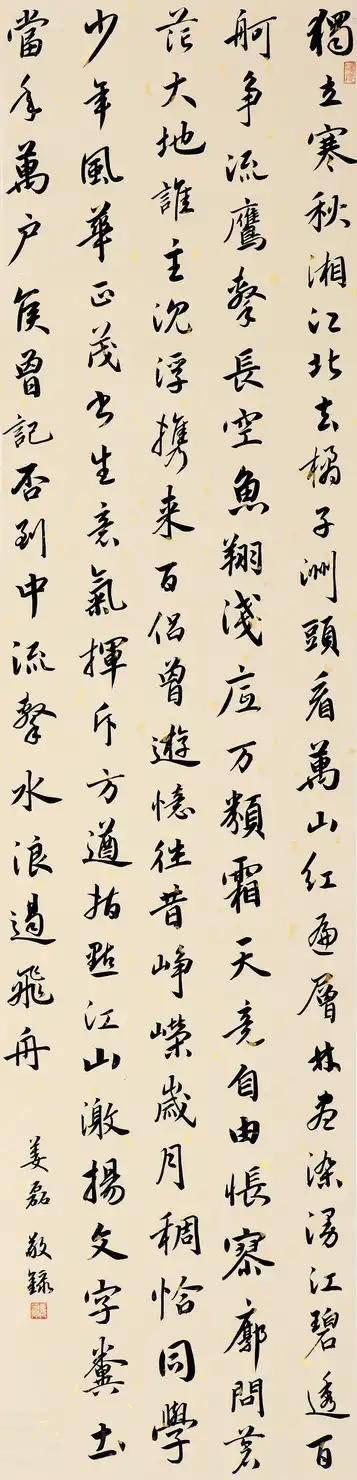 獨立寒秋湘江北去橘子洲頭看萬山紅遍層林盡染漫江碧透百
舸争流鷹擊長空魚翔淺底万類霜天竞自由悵寥廓問蒼
茫大地誰主沈浮携来百侣曾遊憶往昔崢嶸歲月稠恰同學
少年風華正茂书生意氣揮斥方遒指點江山激揚文字糞土
當年萬户侯曾記否到中流擊水浪遏飛舟
姜磊敬録